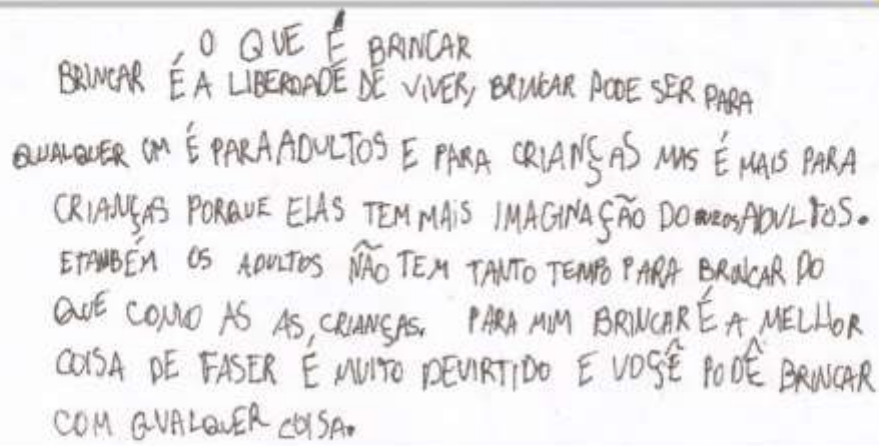 O QUE É BRINCAR
BRINCAR É A LIBERDADE DE VIVER, BRINCAR PODE SER PARA
QUALQUER UM É PARA ADULTOS E PARA CRIANÇAS MAS É MAIS PARA
CRIANÇAS PORQUE ELAS TEM MAIS IMAGINAÇÃO DO ADULTOS.
E TAMBÉM OS ADULTOS NÃO TEM TANTO TEMPO PARA BRINCAR DO
QUE COMO AS AS CRIANÇAS. PARA MIM BRINCAR É A MELHOR
COISA DE FASER É MUITO DEVIRTIDO E VOÇÊ PODÊ BRINCAR
COM QUALQUER COISA.